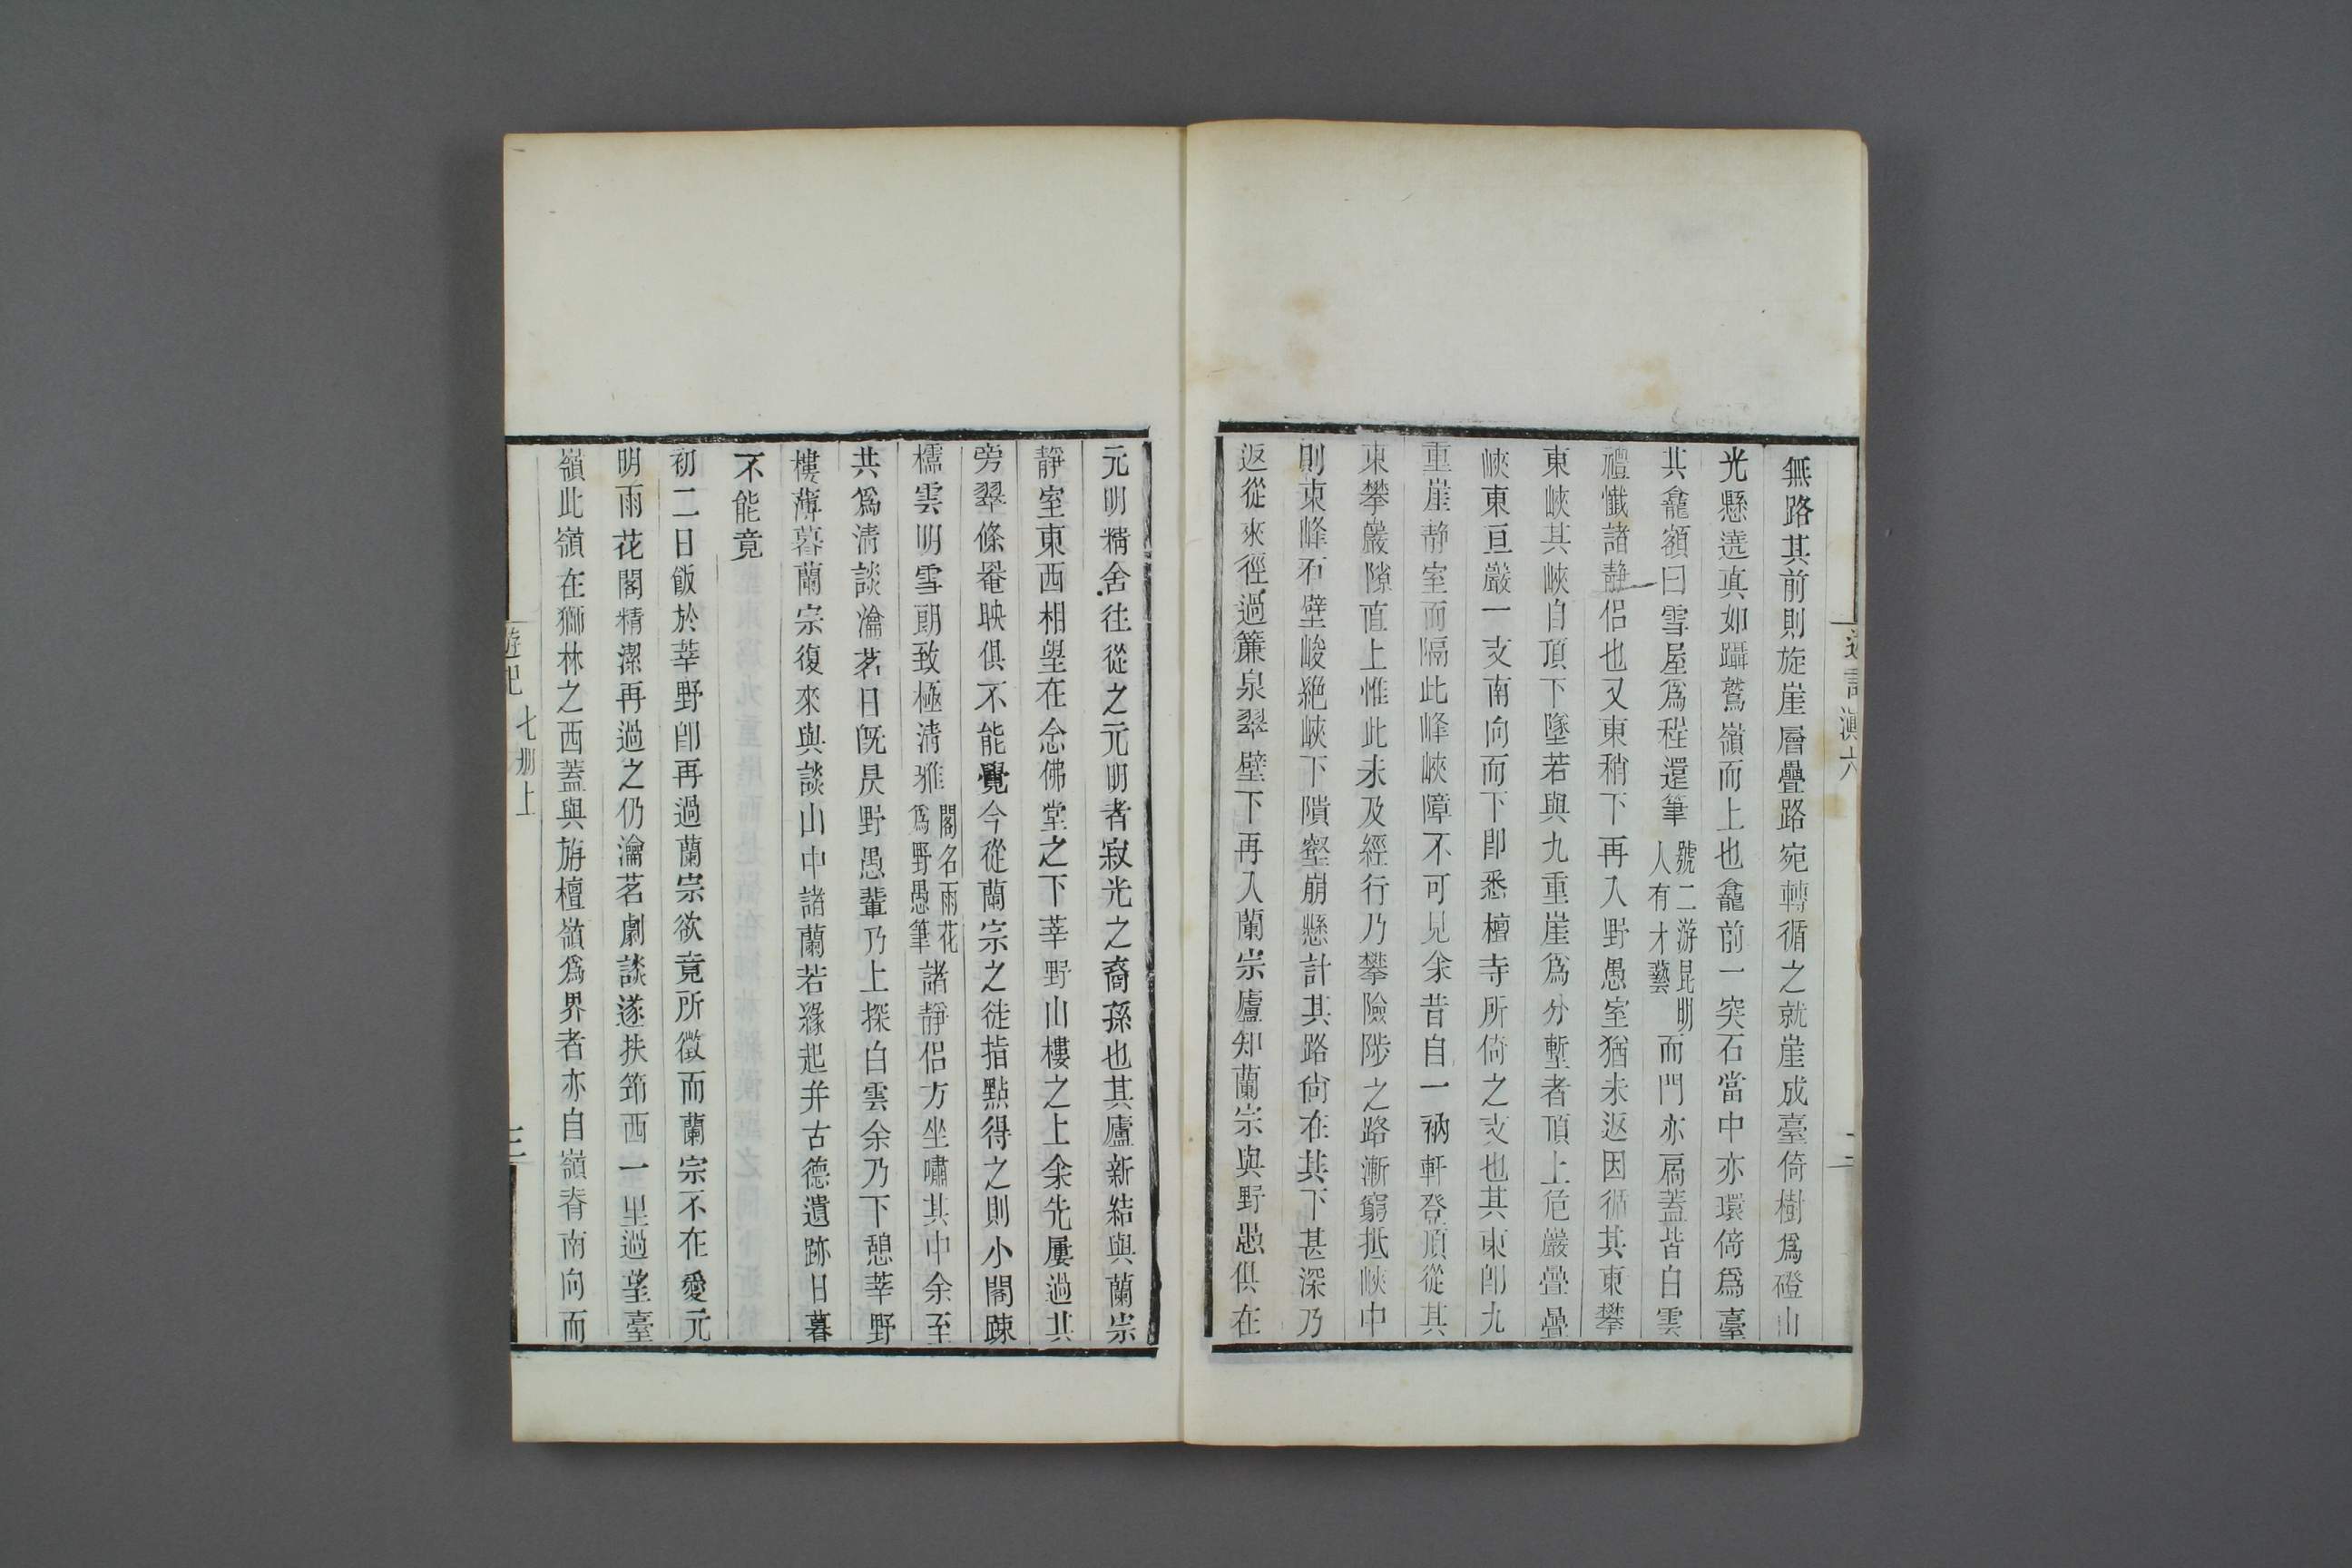 滇六
二
無路其前則旋崖層疊路宛轉循之就崖成臺倚樹爲磴山
光懸遶真如躡鷲嶺而上也龕前一突石當中亦環倚爲臺
其龕額曰雪屋爲程還筆號二游昆明人有才藝而門亦扃蓋皆白雲
禮懺諸靜侶也又東稍下再入野愚室猶未返因循其東攀
東峽其峽自頂下墜若與九重崖爲分塹者頂上危巖疊疊
峽東亘巖一支南向而下即悉檀寺所倚之支也其東即九
重崖静室而隔此峰峽障不可見余昔自一衲軒登頂從其
東攀巖隙直上惟此未及經行乃攀險陟之路漸窮抵峽中
則東峰石壁峻絶峽下隤壑崩懸計其路尙在其下甚深乃
返從來徑過簾泉翠壁下再入蘭宗廬知蘭宗與野愚俱在
元明精舍往從之元明者寂光之裔孫也其廬新結與蘭宗
靜室東西相望在念佛堂之下莘野山樓之上余先屢過其
旁翠條罨映俱不能覺今從蘭宗之徒指點得之則小閣踈
櫺雲明雪朗致極清雅閣名雨花爲野愚筆諸靜侶方坐嘯其中余至
共爲清談瀹茗日旣昃野愚輩乃上探白雲余乃下憩莘野
樓薄暮蘭宗復來與談山中諸蘭若緣起并古德遺跡日暮
不能竟
初二日飯於莘野即再過蘭宗欲竟所徵而蘭宗不在愛元
明雨花閣精潔再過之仍瀹茗劇談遂扶筇西一里過望臺
嶺此嶺在獅林之西蓋與旃檀嶺爲界者亦自嶺脊南向而
遊記 七册上
三